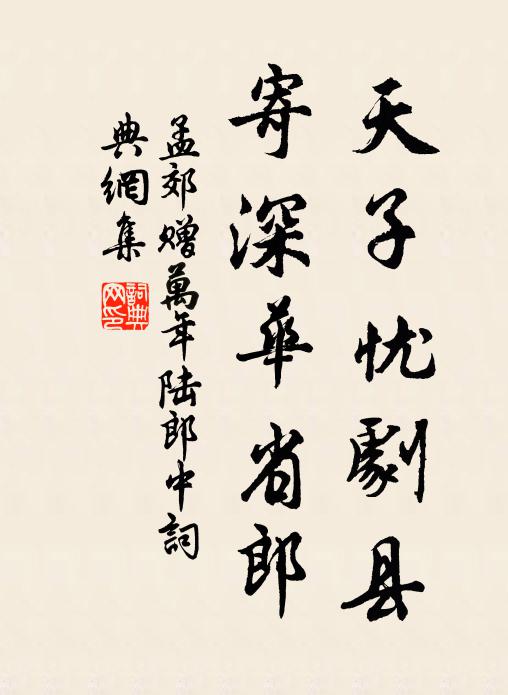 天子忧劇县
寄深華省郎
孟郊赠萬年陆郎中詞
典網集
詞典网印